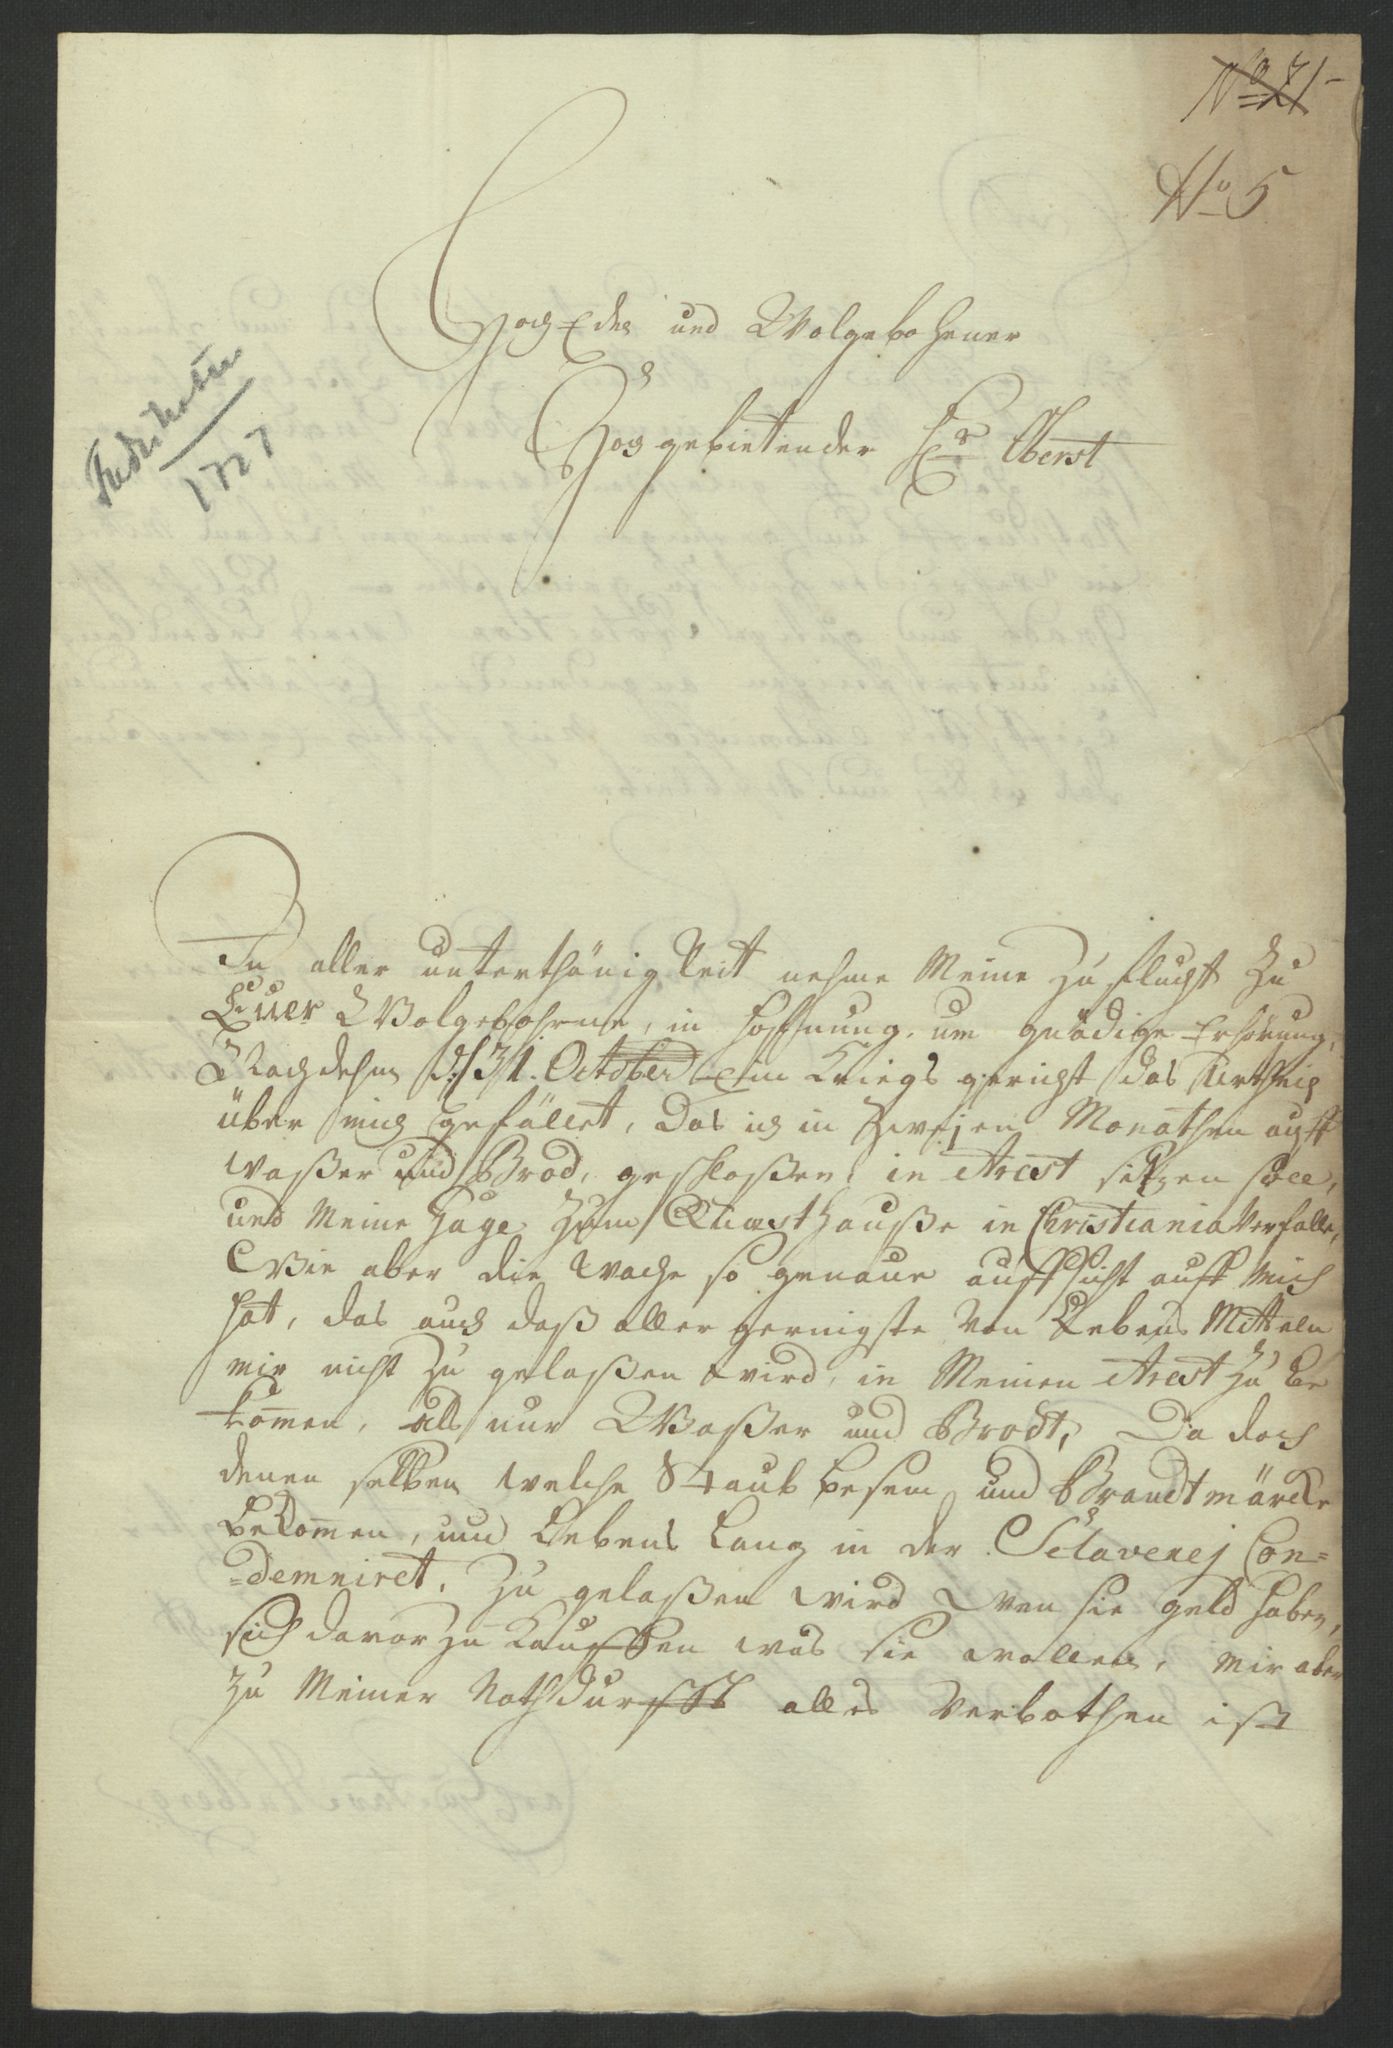 No 21
No 5
1727
Hoch Edler und Wolgebohrner
Hochgebietender Hr Oberst
In aller unterthänigkeit nehme Meine Zuflucht Zu
Euer Wolgebohrne, in Hoffnung um gnädige Erhörung,
Nachdehm d. 31. October ein Kriegs gericht das Urtheil
über mich gefället, Das ich in Zweyen Monathen auff
Waßer und Brod, geschloßen in Arest sitzen soll,
und Meine Gage Zum Qwæsthauße in Christiania Verfalle,
Wie aber die Wache so genaue auffsicht auff Mich
hat, das auch daß aller geringste Von Lebens Mitteln
mir nicht Zu gelaßen wird, in Meinen Arest Zu be
kom̅en, als nur Waßer und Brodt, Da doch
denen selben welche Staub besem und Brandtmärcke
bekom̅en, und Lebens Lang in der Sclaverej Con=
=demniret, Zu gelaßen wird wen sie geld haben,
sich davor zu kauffen was sie wollen, mir aber
Zu Meiner Nothdurfft alles Verbothen ist